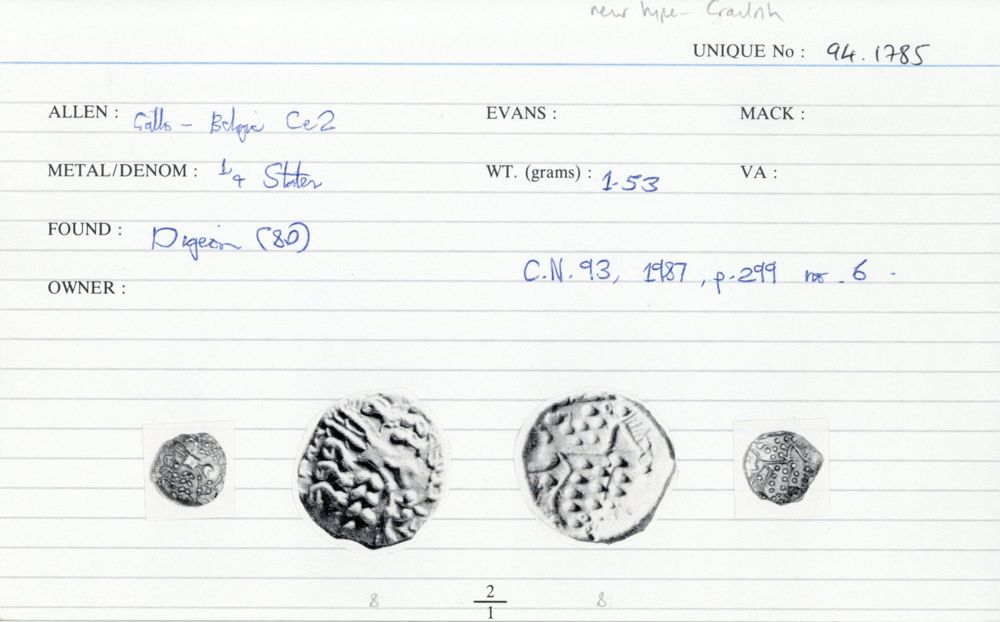 new type -
UNIQUE No : 94.1785
ALLEN : Gallo - Belgic Ce2 EVANS : MACK :
METAL/DENOM : 1/4 Stater WT. (grams) : 1.53 VA :
FOUND : Digeon (80)
C.N. 93, 1987, p.299 no. 6.
OWNER :
8 2/1 8